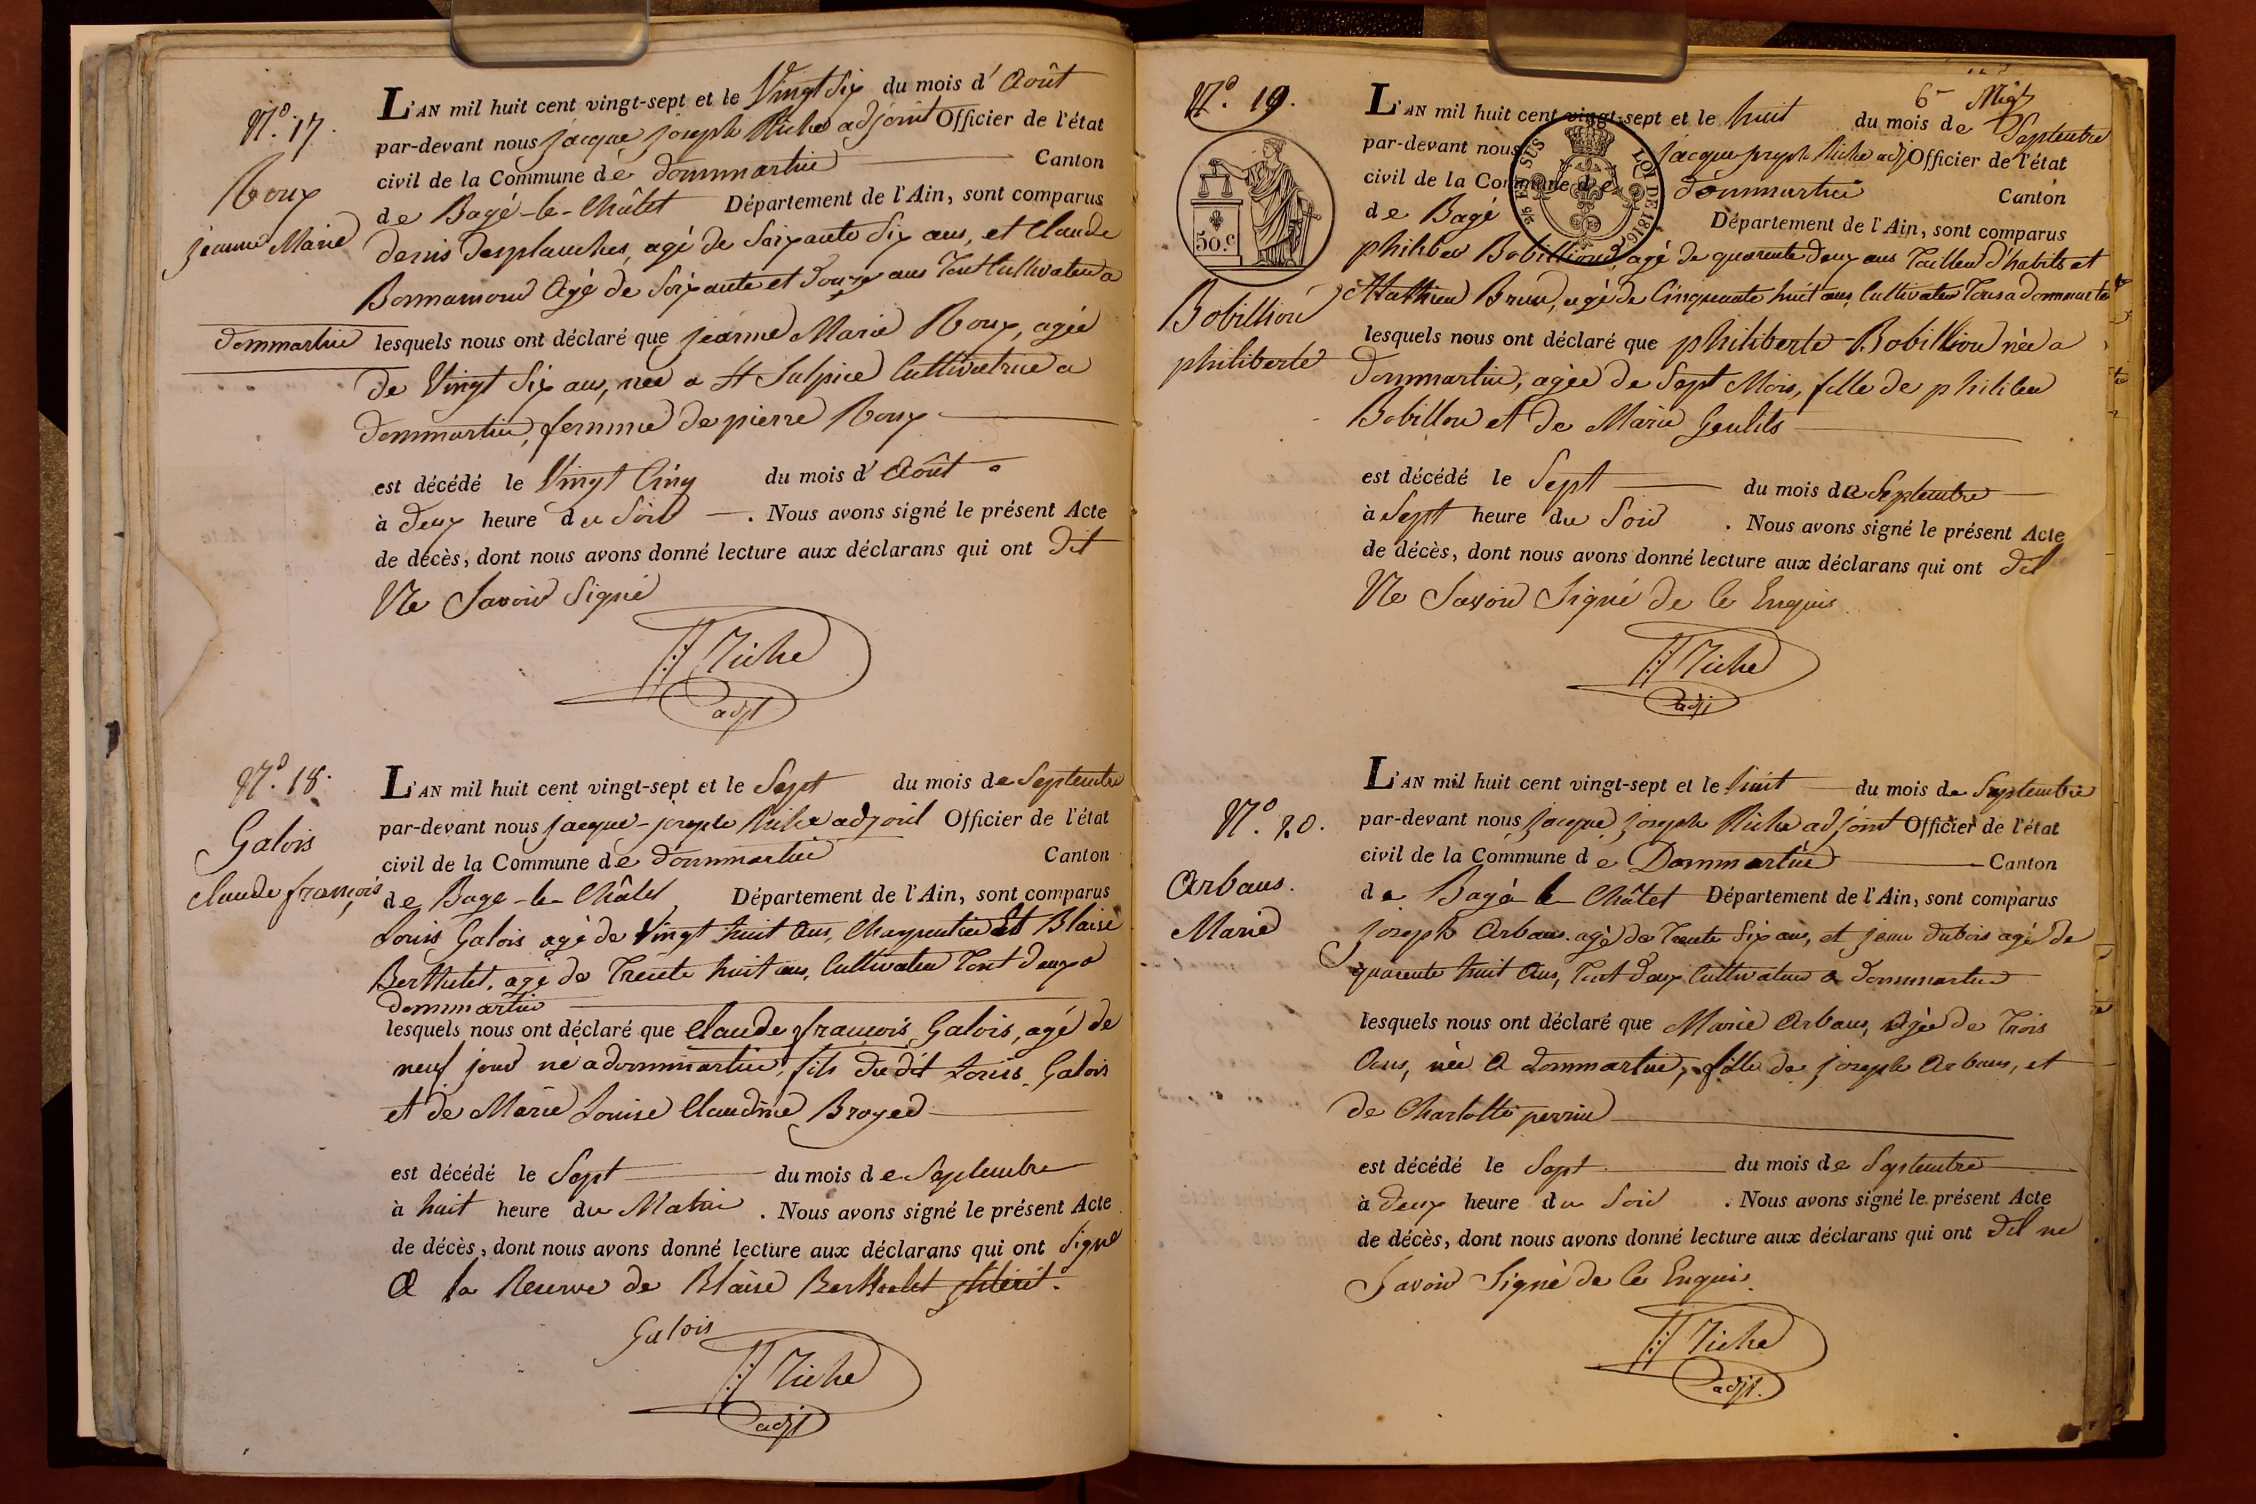 N.º 17.
Roux
jeanne Marie
L'AN mil huit cent vingt-sept et le Vingt Six du mois d'Août
par-devant nous jacque joseph Riche adjoint Officier de l'état
civil de la Commune de dommartin Canton
de Bagé-le-Châtel Département de l'Ain, sont comparus
denis desplanches, agé de Soixante Six ans, et Claude
Bonnamour Agé de Soixante et douze ans Tout Cultivateur a
dommartin lesquels nous ont déclaré que jeanne Marie Roux, agée
de Vingt Six ans, née a St Sulpice Cultivatrice a
dommartin, femme de pierre Roux
est décédé le Vingt Cinq du mois d'Août
à deux heure du Soir. Nous avons signé le présent Acte
de décès, dont nous avons donné lecture aux déclarans qui ont dit
Ne Savoir Signé
JJ Riche
adjt
N.º 18.
Galois
claude françois
L'AN mil huit cent vingt-sept et le Sept du mois de Septembre
par-devant nous jacque-joseph Riche adjoint Officier de l'état
civil de la Commune de dommartin Canton
de Bage-le-Châtel Département de l'Ain, sont comparus
Louis Galois agé de Vingt huit Ans, Charpentier Et Blaise
Berthelet, agé de Trente huit ans, Cultivateur Tout deux a
dommartin
lesquels nous ont déclaré que Claude françois Galois, agé de
neuf jour né a dommartin, fils du dit Louis Galois
et de Marie Louise Claudine Broyer
est décédé le Sept du mois de Septembre
à huit heure du Matin. Nous avons signé le présent Acte
de décès, dont nous avons donné lecture aux déclarans qui ont Signé
A la Reserve de Blaise Berthelet
Galois
JJ Riche
adjt
6e
N.º 19.
50.c
25 EN SUS
LOI DE 1816
Bobillion
philiberte
L'AN mil huit cent vingt-sept et le huit du mois de Septembre
par-devant nous jacque joseph Riche adj Officier de l'état
civil de la Commune de dommartin Canton
de Bagé Département de l'Ain, sont comparus
philiber Bobillion, agé de quarente deux ans Tailleur d'habits et
Mathieu Brun, agé de Cinquante huit ans, Cultivateur Tous a dommartin
lesquels nous ont déclaré que philiberte Bobillion née a
Dommartin, agée de Sept Mois, fille de philiber
Bobillon et de Marie Gentils
est décédé le Sept du mois de Septembre
à Sept heure du Soir. Nous avons signé le présent Acte
de décès, dont nous avons donné lecture aux déclarans qui ont dit
Ne Savoir Signé de Ce Enquis
JJ Riche
adjt
N.º 20.
Arbans.
Marie
L'AN mil huit cent vingt-sept et le huit du mois de Septembre
par-devant nous jacque joseph Riche adjoint Officier de l'état
civil de la Commune de Dommartin Canton
de Bagé le Châtel Département de l'Ain, sont comparus
joseph Arbans agé de Trente Six ans, et jean dubois agé de
quarente huit Ans, Tout deux Cultivateur a dommartin
lesquels nous ont déclaré que Marie Arbans, Agée de Trois
Ans, née A dommartin, fille de joseph Arbans, et
de Charlotte perrin
est décédé le Sept du mois de Septembre
à deux heure du Soir. Nous avons signé le présent Acte
de décès, dont nous avons donné lecture aux déclarans qui ont dit ne
Savoir Signé de Ce Enquis.
JJ Riche
adjt.